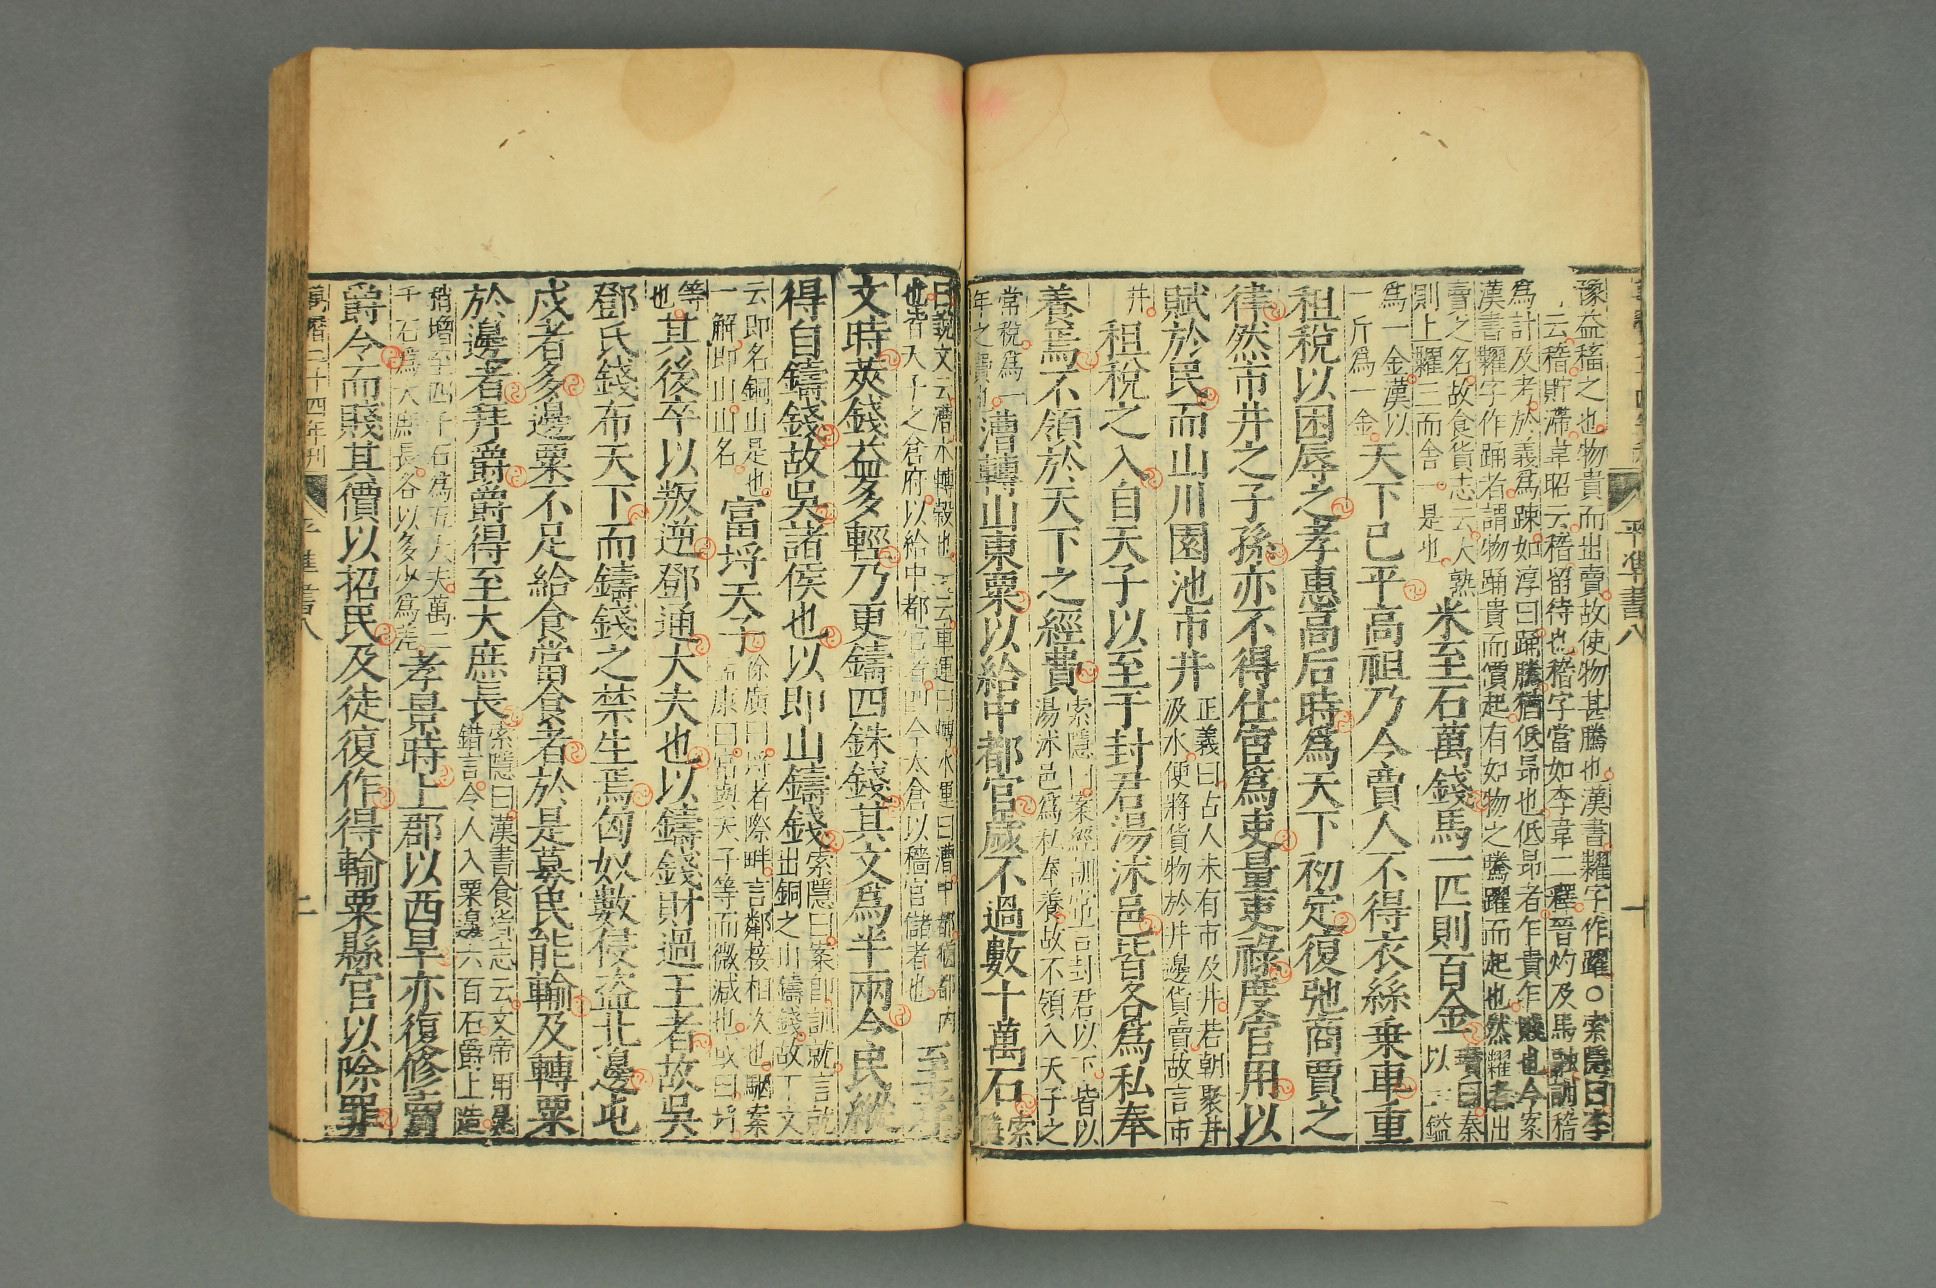 豫益稸之也物貴而出賣故使物甚騰也漢書糶字作躍○索隱曰李
云稽貯滯韋昭云稽留待也稽字當如李韋二釋晉灼及馬融訓稽
爲計及考於義爲踈如淳曰踊騰猶低昻也低昻者乍貴乍賤也今案
漢書糶字作踊者謂物踊貴而價起有如物之騰躍而起也然糶者出
賣之名故食貨志云大熟
則上糶三而舍一是也
米至石萬錢馬一匹則百金
瓚曰秦
以一鎰
爲一金漢以
一斤爲一金
天下已平高祖乃令賈人不得衣絲乗車重
租稅以困辱之孝惠高后時爲天下初定復弛商賈之
律然市井之子孫亦不得仕宦爲吏量吏祿度官用以
賦於民而山川園池市井
正義曰古人未有市及井若朝聚井
汲水便將貨物於井邊貨賣故言市
井
租稅之入自天子以至于封君湯沐邑皆各爲私奉
養焉不領於天下之經費
索隱曰案經訓常言封君以下皆以
湯沐邑爲私奉養故不領入天子之
常稅爲一
年之費
漕轉山東粟以給中都官歲不過數十萬石
索
隱
曰說文云漕水轉穀也一云車運曰轉水運曰漕中都猶都內
也者天子之倉府以給中都官者即今太倉以穡官儲者也
至孝
文時莢錢益多輕乃更鑄四銖錢其文爲半兩令民縱
得自鑄錢故吳諸侯也以即山鑄錢
索隱曰案即訓就言就
出銅之山鑄錢故下文
云即名銅山是也
一解即山山名
富埒天子
徐廣曰埒者際畔言鄰接相次也駰案
孟康曰富與天子等而微減也或曰埒
等
也
其後卒以叛逆鄧通大夫也以鑄錢財過王者故吳
鄧氏錢布天下而鑄錢之禁生焉匈奴數侵盜北邊屯
戍者多邊粟不足給食當食者於是募民能輸及轉粟
於邊者拜爵爵得至大庶長
索隱曰漢書食貨志云文帝用晁
錯言令人入粟邊六百石爵上造
稍增至四千石爲五大夫萬二
千石爲大庶長各以多少爲差
孝景時上郡以西旱亦復修賣
爵令而賤其價以招民及徒復作得輸粟縣官以除罪
萬曆二十四年刊
平準書八
二
平準書八